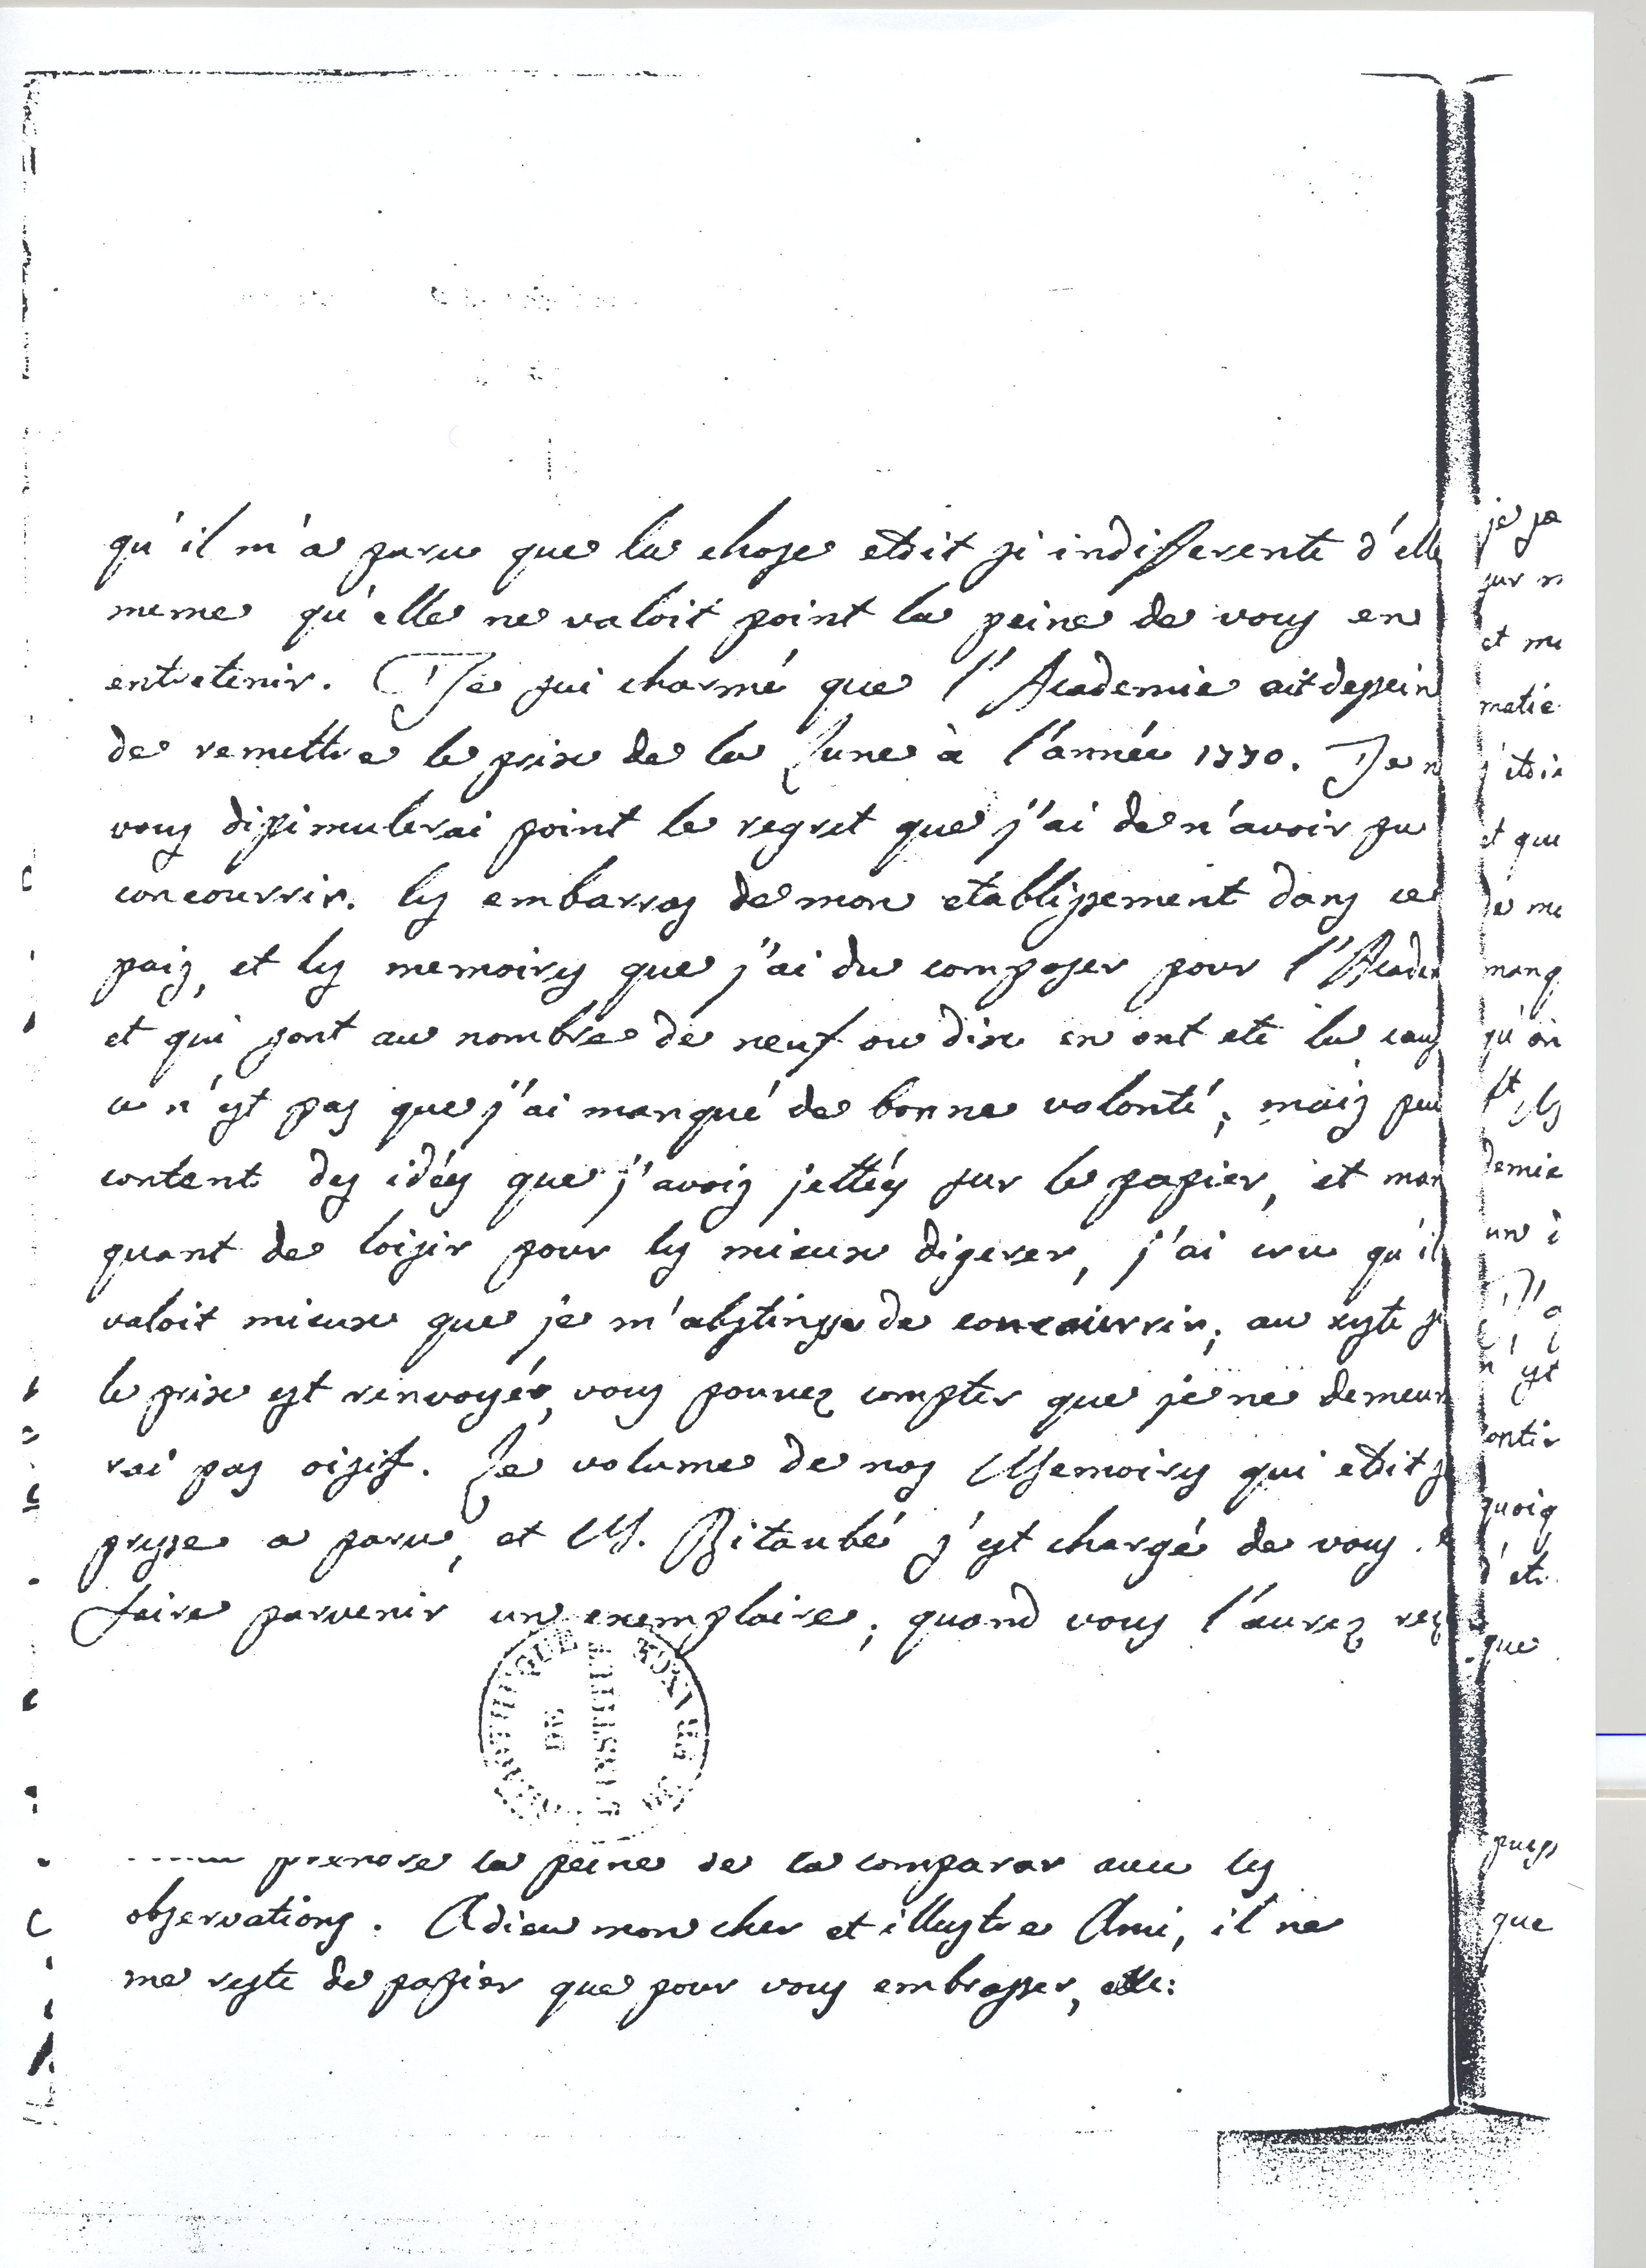 qu'il m'a paru que la chose etoit si indifferente d'elle
meme qu'elle ne valoit point la peine de vous en
entretenir. Je sui charmé que l'Academie ait dessein
de remettre le prix de la Lune à l'année 1770. Je n
vous dissimulerai point le regret que j'ai de n'avoir pu
concourrir. les embarras de mon etablissement dans ce
pais, et les memoires que j'ai du composer pour l'Acade
et qui sont au nombre de neuf ou dix en ont eté la caus
ce n'est pas que j'ai manqué de bonne volonté; mais peu
content des idées que j'avois jettées sur le papier, et man
quant de loisir pour les mieux digerer, j'ai cru qu'il
valoit mieux que je m'abstinsse de concourrir; au reste si
le prix est renvoyé, vous pouvez compter que je ne demeure
rai pas oisif. Le volume de nos Memoires qui etoit so
presse a paru, et M. Bitaubé s'est chargé de vous
faire parvenir un exemplaire; quand vous l'aurez reç
BIBLIOTHEQUE DE L'INSTITUT
prendre la peine de la comparer avec les
observations. Adieu mon cher et illustre Ami, il ne
me reste de papier que pour vous embrasser,
je
sur
et
matie
j'etois
et que
de
manq
qu'on
et les
demie
un
n'est
quoiq
que
que